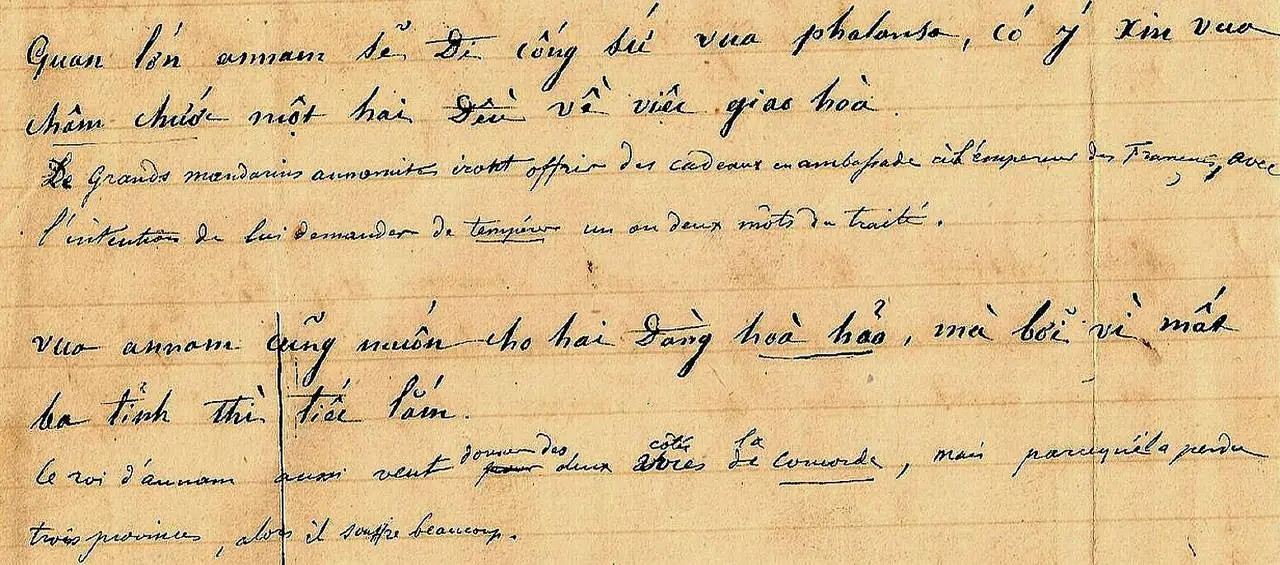 Quan lớn annam sẽ Đi cống sứ vua phalansa, có ý xin vua
châm chước một hai Đều về việc giao hoà
De Grands mandarins annamites iront offrir des cadeaux en ambassade à l'empereur des Français, avec
l'intention de lui demander de tempérer un ou deux môts du traité.
vua annam cũng muốn cho hai Đàng hoà hảo, mà bởi vì mất
ba tỉnh thì tiếc lắm.
le roi d'annam aussi veut donner des deux côtés la concorde, mais parcequ'il a perdu
trois provinces, alors il souffre beaucoup.